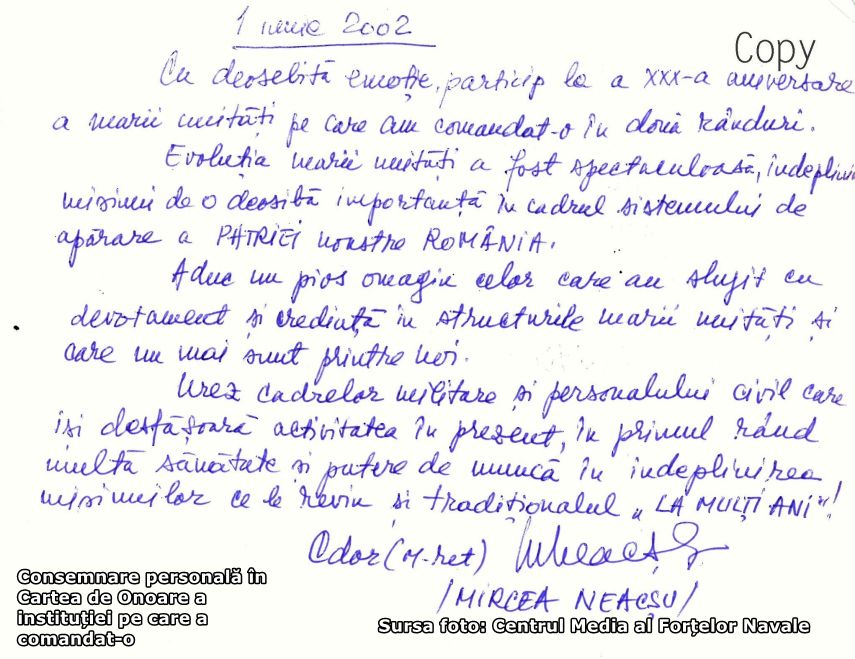 1 iunie 2002
Copy
Cu deosebită emoție, particip la a XXX-a aniversare
a marii unități pe care am comandat-o în două rânduri.
Evoluția marii unități a fost spectaculoasă, îndeplini
misiuni de o deosibă importanță în cadrul sistemului de
apărare a PATRIEI noastre ROMÂNIA.
Aduc un pios omagiu celor care au slujit cu
devotament și credință în structurile marii unități și
care nu mai sunt printre noi.
Urez cadrelor militare și personalului civil care
își desfășoară activitatea în prezent, în primul rând
multă sănătate și putere de muncă în îndeplinirea
misiunilor ce le revin și tradiționalul „LA MULȚI ANI"!
Cdor (M-ret)
/MIRCEA NEACȘU/
Consemnare personală în
Cartea de Onoare a
instituției pe care a
comandat-o
Sursa foto: Centrul Media al Forțelor Navale